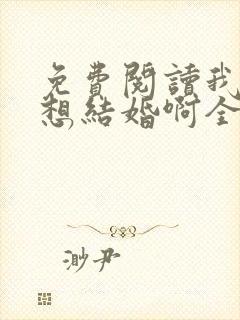 免費閱讀我
想結婚啊全
渺尹